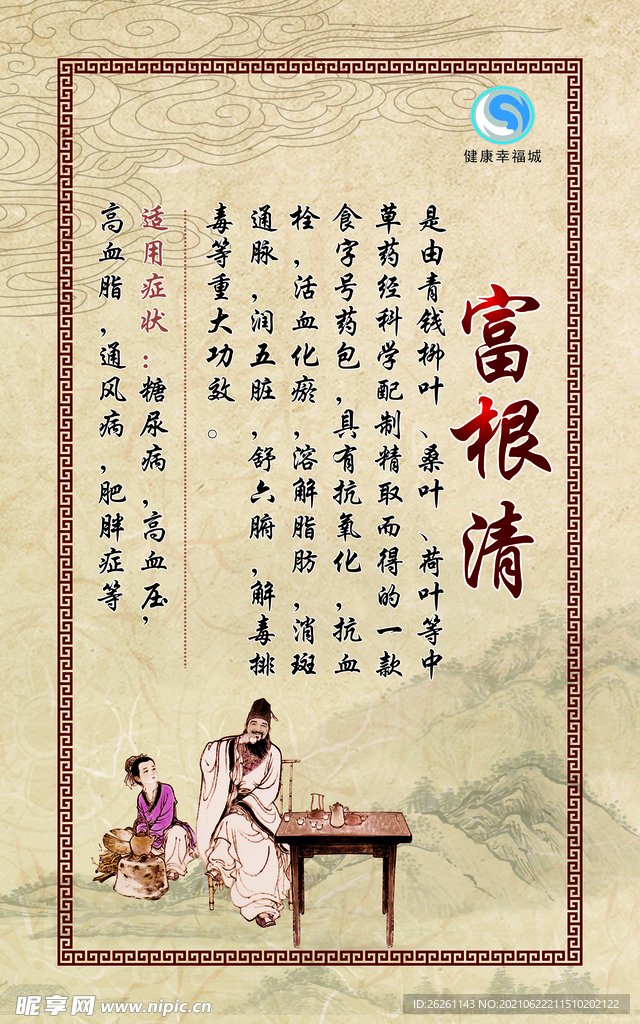 健康幸福城
富根清
是由青钱柳叶、桑叶、荷叶等中
草药经科学配制精取而得的一款
食字号药包，具有抗氧化，抗血
栓，活血化瘀，溶解脂肪，消斑
通脉，润五脏，舒六腑，解毒排
毒等重大功效。
适用症状：糖尿病，高血压，
高血脂，通风病，肥胖症等
昵享网 www.nipic.cn
ID:26261143 NO:20210622211510202122